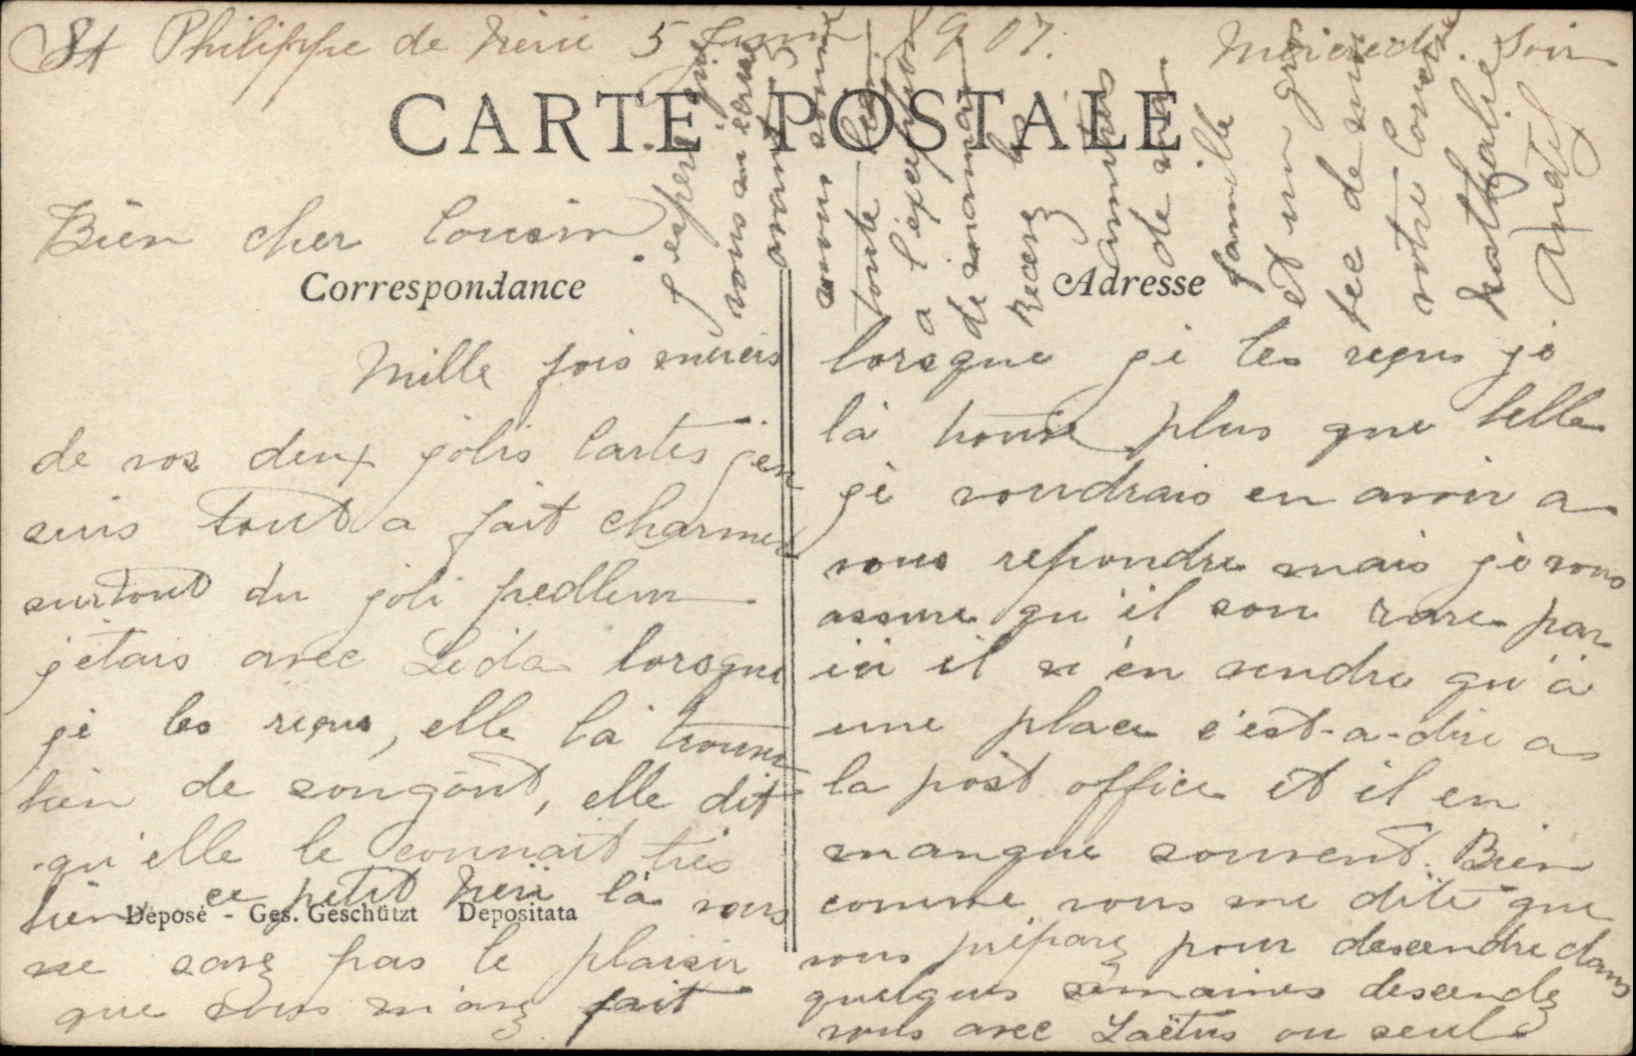 St Philippe de Néri 5 Juin 1907. Mercredi Soir
CARTE POSTALE
Bien cher Cousin
Correspondance
Adresse
Mille fois mercis
de vos deux jolis Cartes j'en
suis tout a fait charmé
surtout du joli
j'etais avec Léda lorsque
je les reçus, elle la trouve
bien de son gôut, elle dit
qu'elle le connait très
bien ce petit Néri là vous
Déposé - Ges. Geschützt Depositata
ne savez pas le plaisir
que vous m'avez fait
lorsque je les reçus je
la trouve plus que belle
je voudrais en avoir a
vous repondre mais je vous
assure qu'il son rare par
ici il s'en vendre qu'à
une place c'est-a-dire a
la post office et il en
manque souvent. Bien
comme vous me dite que
vous préparez pour descendre dans
quelques semaines descendez
vous avec Laëtus ou seul
J'espère que
vous m'ecrire
avant
nous sommes
toute bien
a l'exeption
de maman
Recevez les
amitiés
de ma
famille
Et un gros
bec de
votre Cousine
Nathalie
Anetil